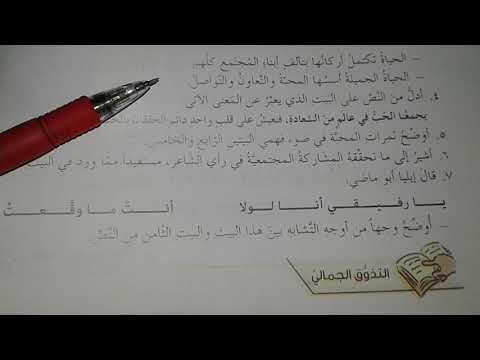 – الحياةُ تكتملُ أركانُها بتآلفِ أبناءِ المُجتمَعِ كلِّهِ.
– الحياةُ الجميلةُ أسسُها المحبّةُ والتَّعاونُ والتَّواصلُ.
٤. أدلُّ منَ النَّصِّ على البيتِ الذي يعبِّرُ عنِ المَعنى الآتي
يجمعُنا الحُبُّ في عالمٍ منَ السَّعادةِ، فنعيشُ على قلبٍ واحدٍ دائمِ الخفقِ
٥. أوضِّحُ ثمراتِ المحبّةِ في ضوءِ فهمي البيتينِ الرّابعَ والخامسَ.
٦. أشيرُ إلى ما تحقّقُهُ المشاركةُ المجتمعيّةُ في رأيِ الشّاعرِ، مستفيداً ممّا وردَ في البيتِ
٧. قالَ إيليا أبو ماضي:
يـا رفيـقـي أنـا لـولا أنـتَ مـا وقَّـعـتُ
– أوضِّحُ وجهاً من أوجهِ التَّشابهِ بينَ هذا البيتِ والبيتِ الثّامنِ منَ النَّصِّ.
التذوُّق الجماليّ